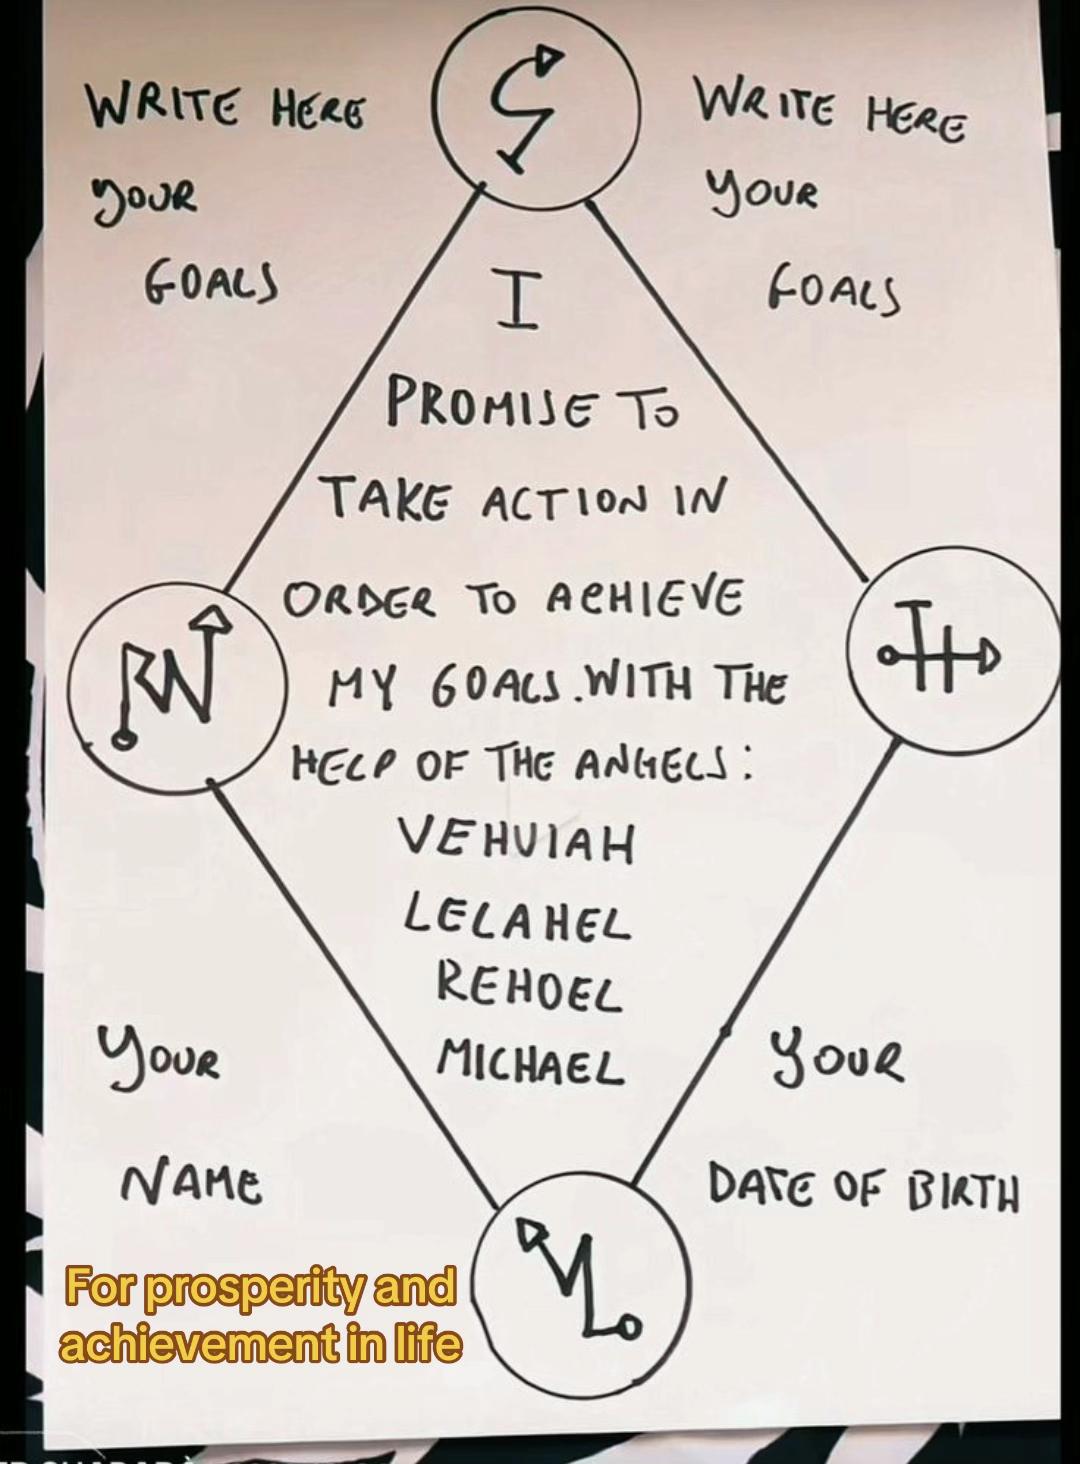 WRITE HERE
YOUR
GOALS
WRITE HERE
YOUR
GOALS
I
PROMISE TO
TAKE ACTION IN
ORDER TO ACHIEVE
MY GOALS. WITH THE
HELP OF THE ANGELS:
VEHUIAH
LELAHEL
REHOEL
MICHAEL
YOUR
NAME
YOUR
DATE OF BIRTH
For prosperity and
achievement in life